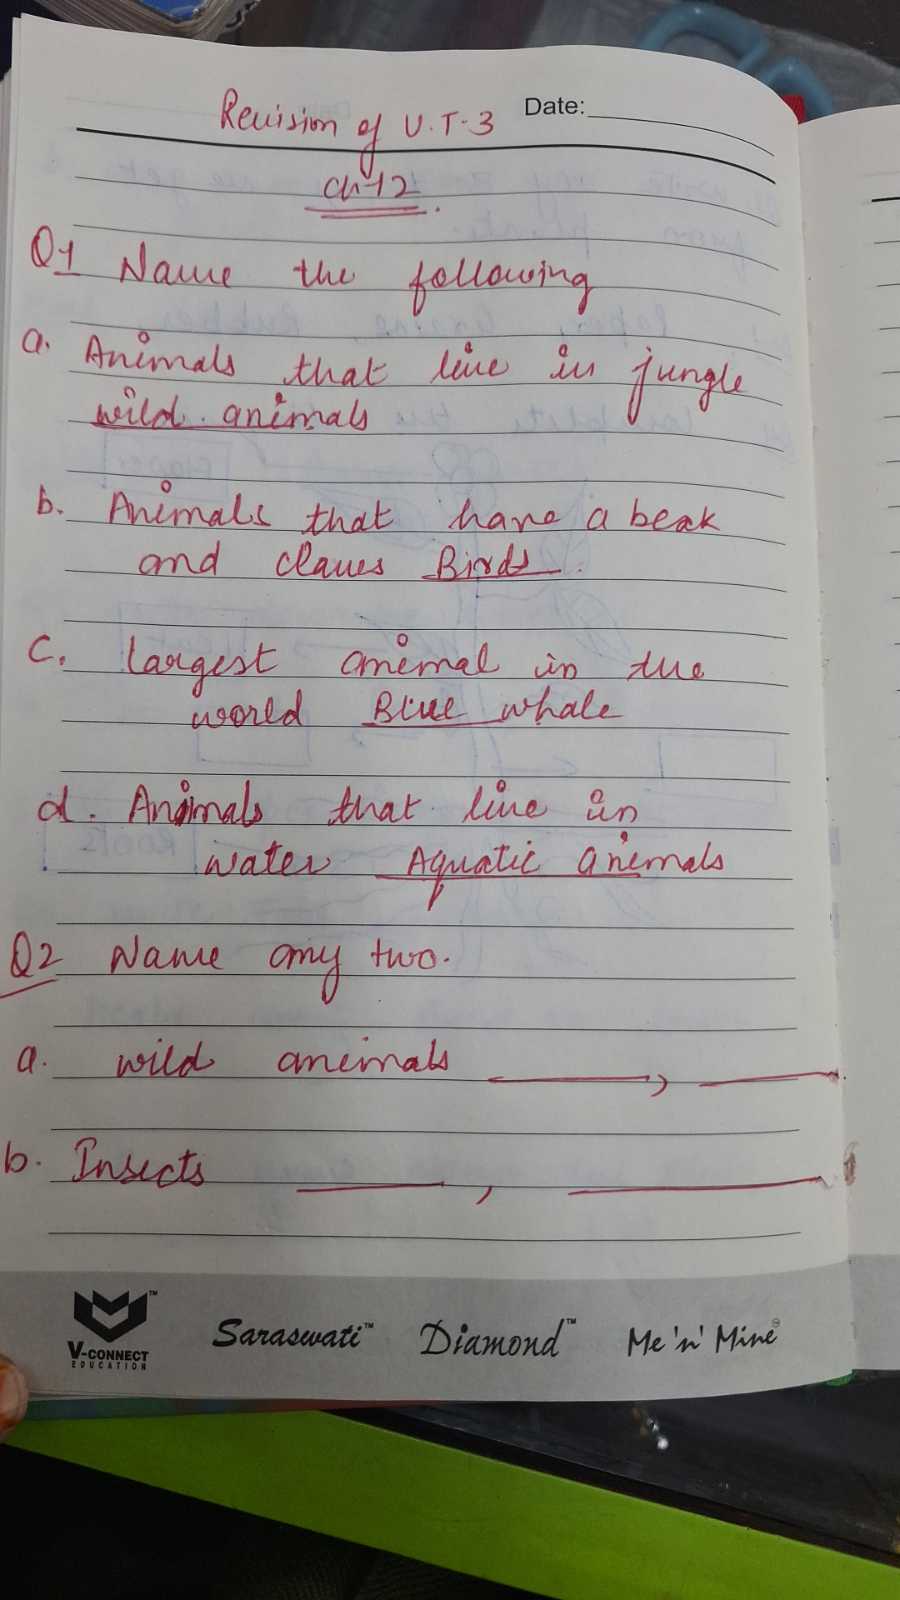 Revision of U.T-3 Date:
Ch-12
Q1 Name the following
a. Animals that live in jungle
wild animals
b. Animals that have a beak
and claws Birds.
C. largest animal in the
world Blue whale
d. Animals that live in
water Aquatic animals
Q2 Name any two.
a. wild animals ______, ______
b. Insects ______, ______
V-CONNECT
EDUCATION
Saraswati™ Diamond™ Me 'n' Mine